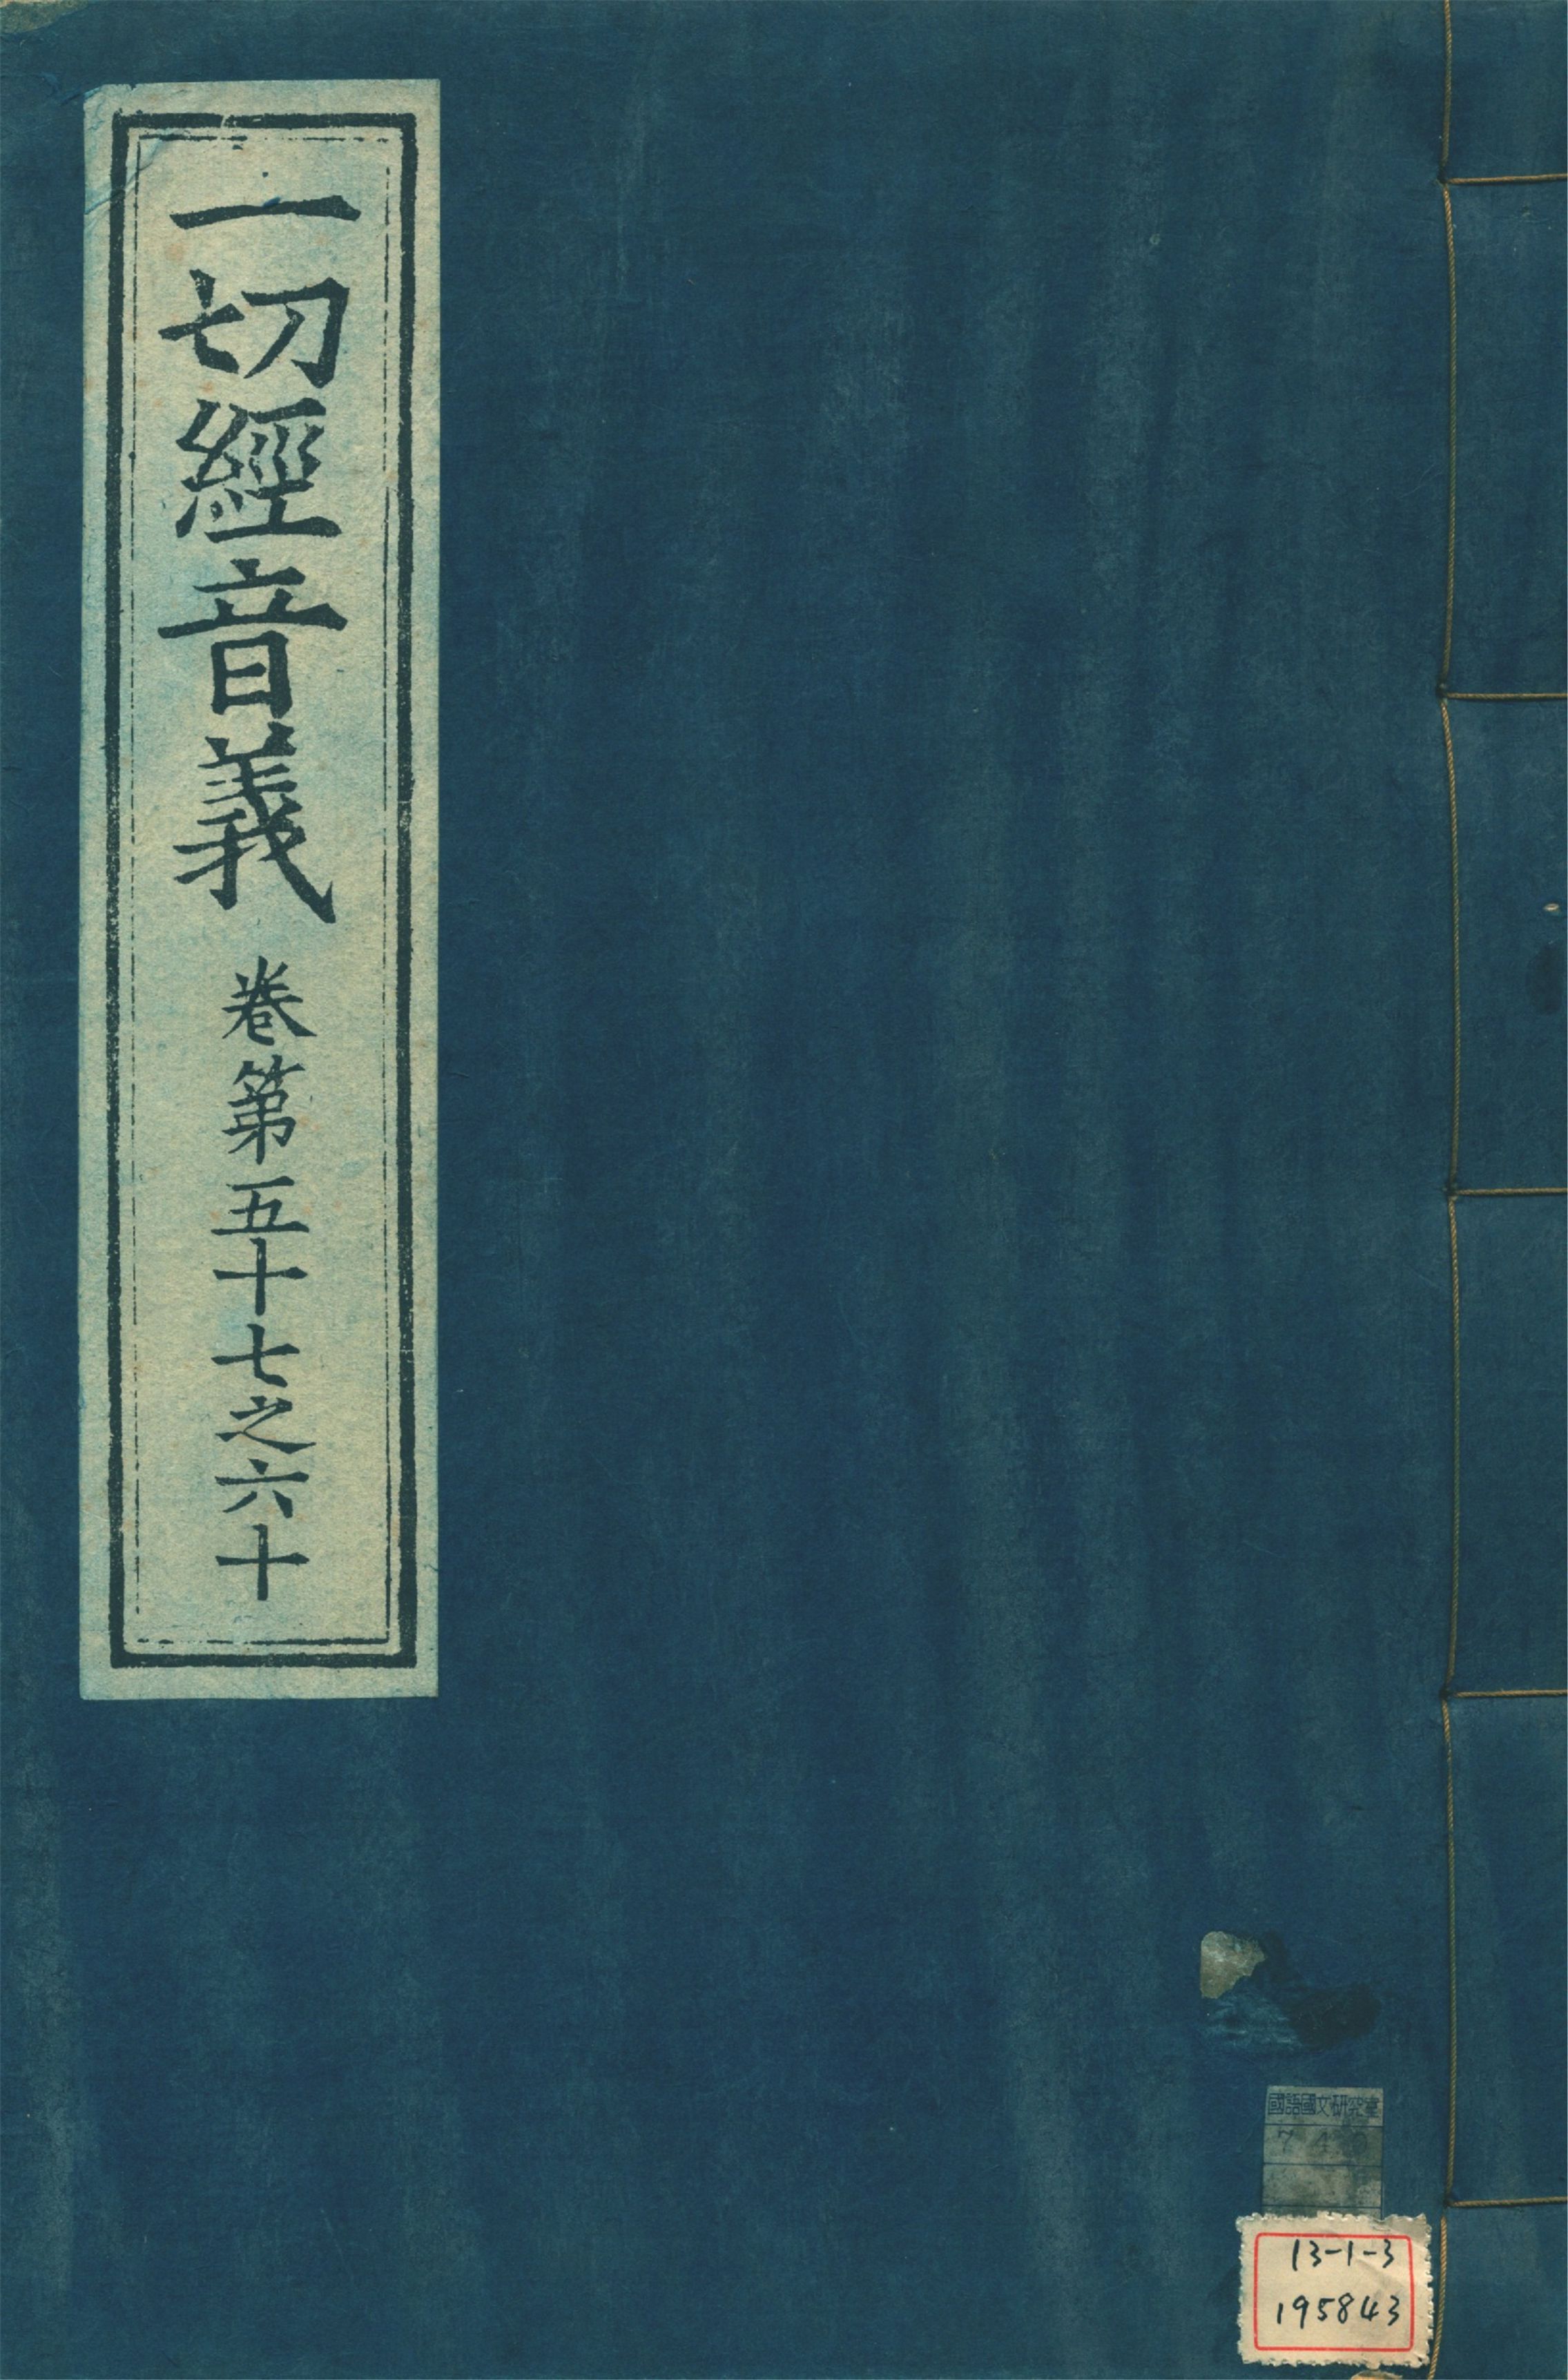 一切經音義 卷第五十七之六十
國語國文研究室
7 4 0
13-1-3
195843